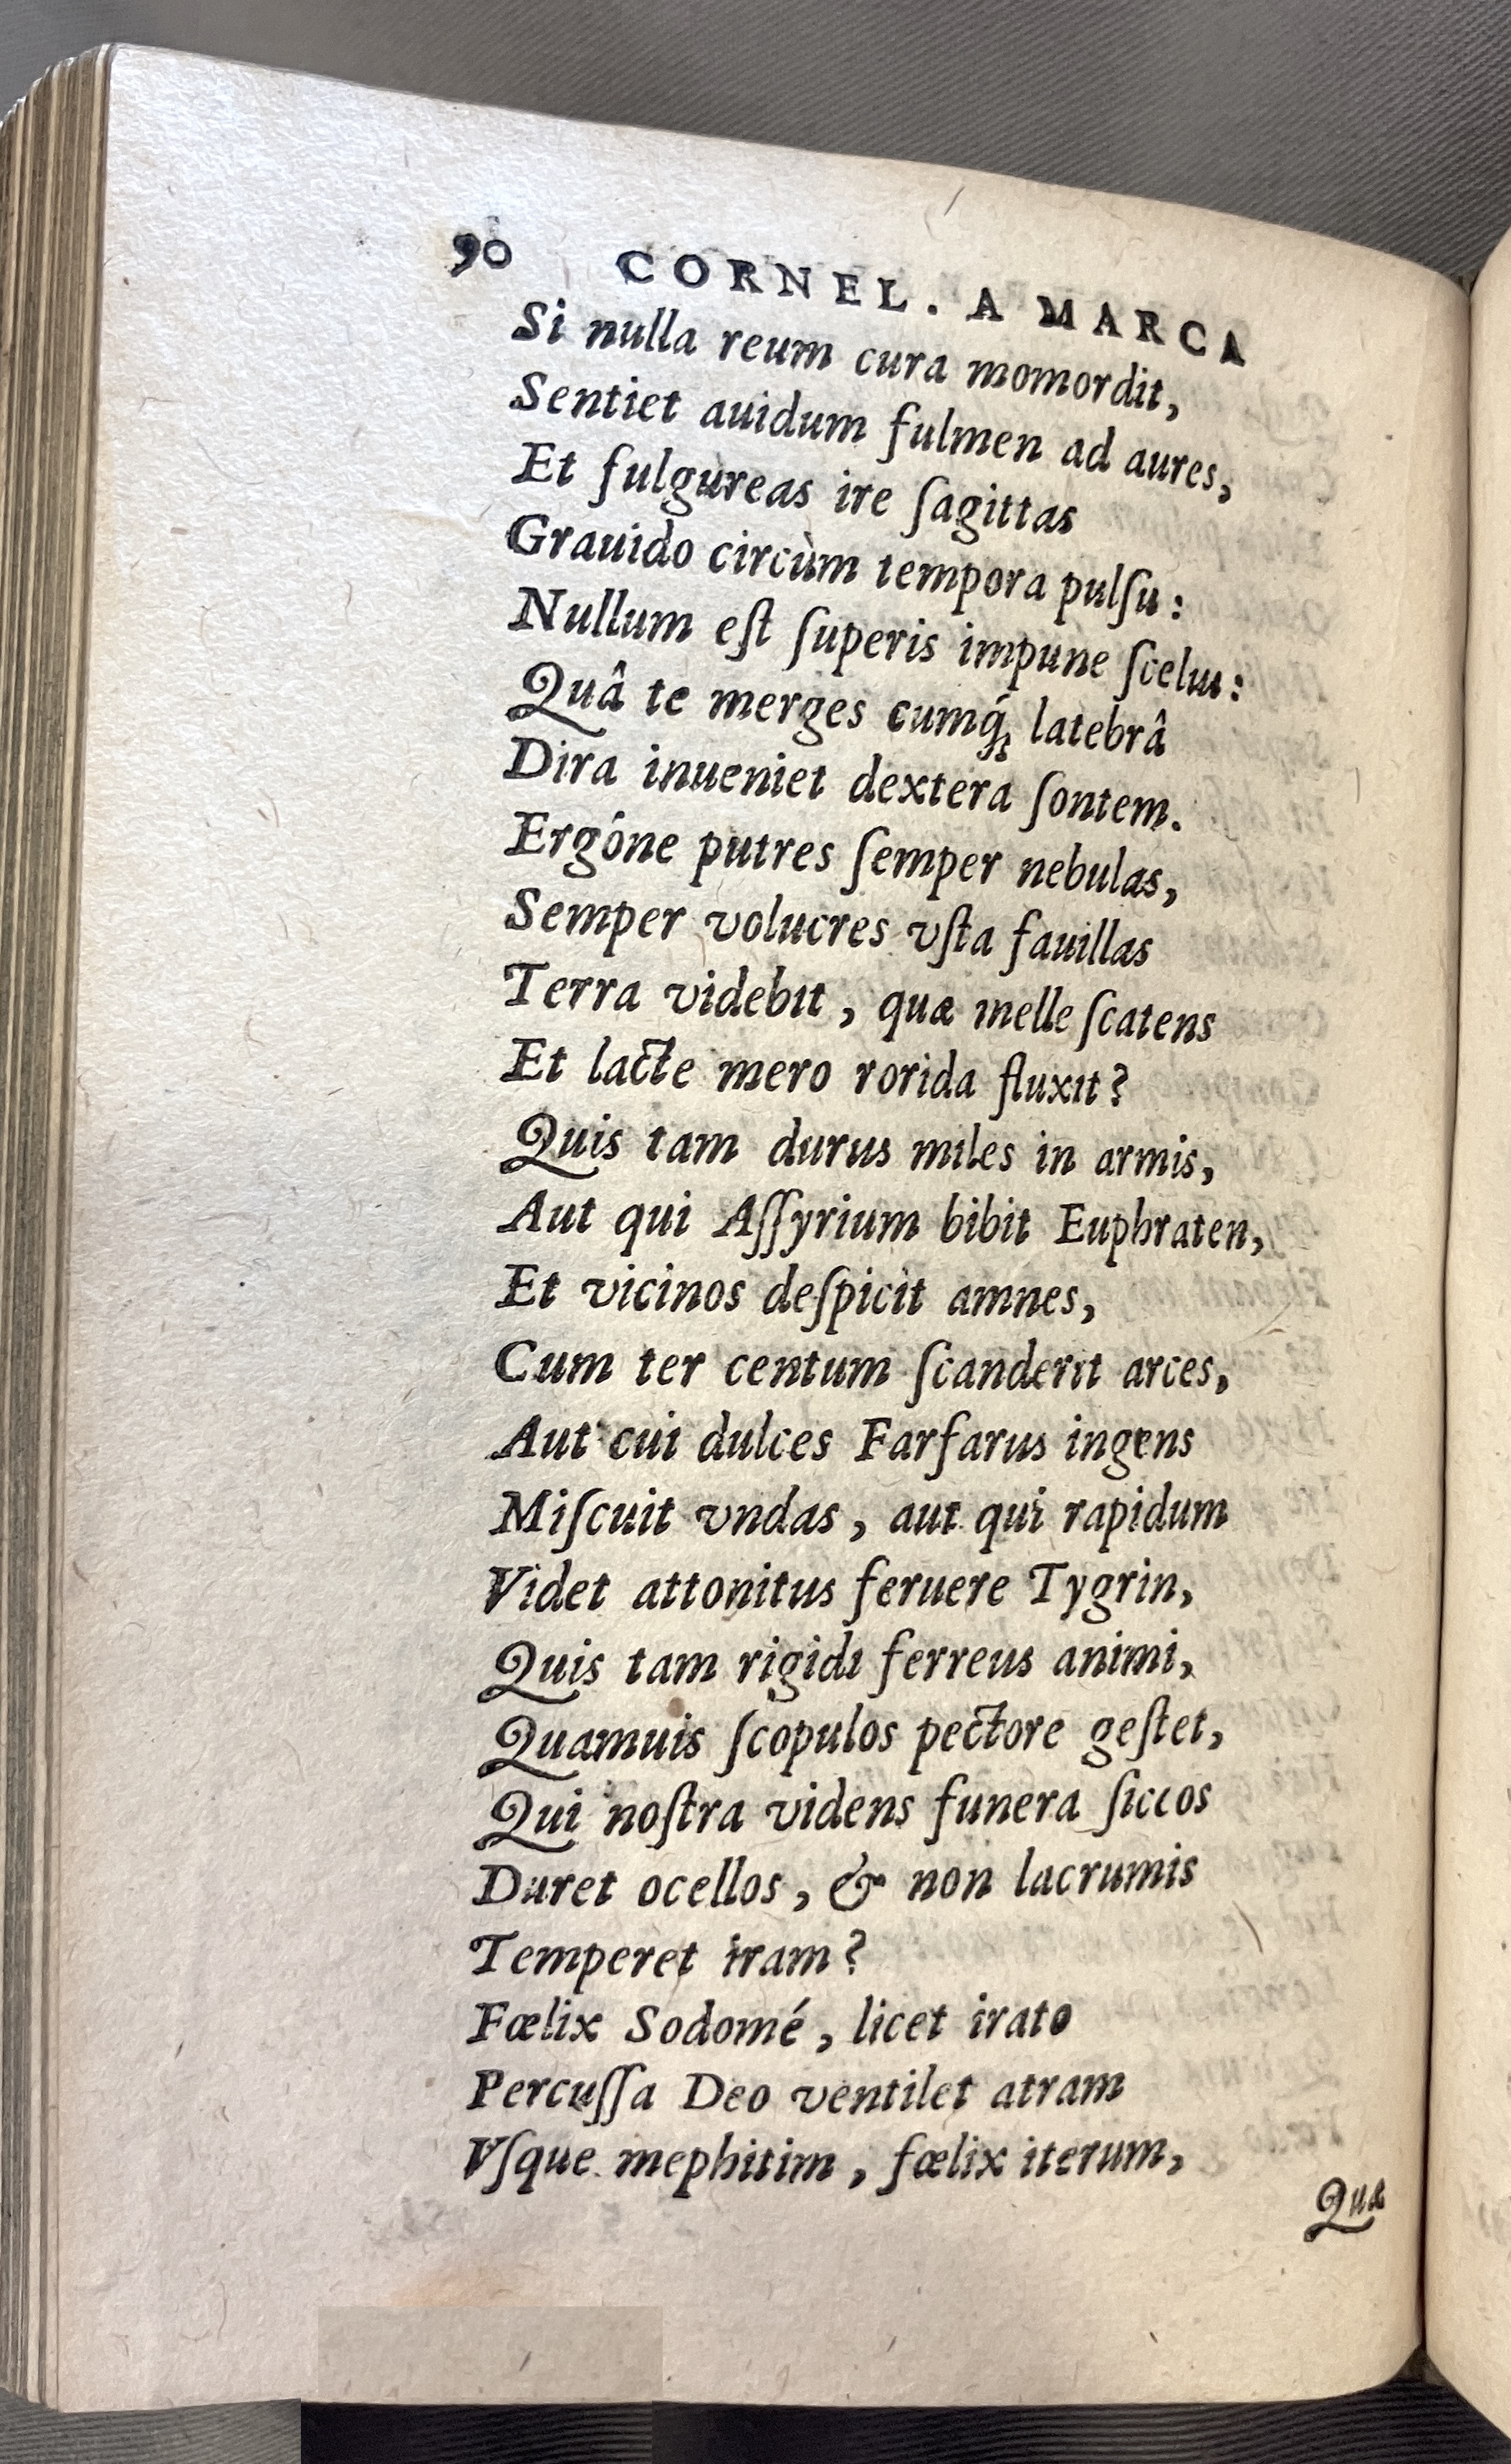 90 CORNEL. A MARCA
Si nulla reum cura momordit,
Sentiet auidum fulmen ad aures,
Et fulgureas ire ſagittas
Grauido circùm tempora pulſu:
Nullum eſt ſuperis impune ſcelus:
Quâ te merges cumq́; latebrâ
Dira inueniet dextera ſontem.
Ergóne putres ſemper nebulas,
Semper volucres vſta fauillas
Terra videbit, quæ melle ſcatens
Et lacte mero rorida fluxit?
Quis tam durus miles in armis,
Aut qui Aſſyrium bibit Euphraten,
Et vicinos deſpicit amnes,
Cum ter centum ſcanderit arces,
Aut cui dulces Farfarus ingens
Miſcuit vndas, aut qui rapidum
Videt attonitus feruere Tygrin,
Quis tam rigidi ferreus animi,
Quamuis ſcopulos pectore geſtet,
Qui noſtra videns funera ſiccos
Duret ocellos, & non lacrumis
Temperet iram?
Fœlix Sodomé, licet irato
Percuſſa Deo ventilet atram
Vſque mephitim, fœlix iterum,
Quæ